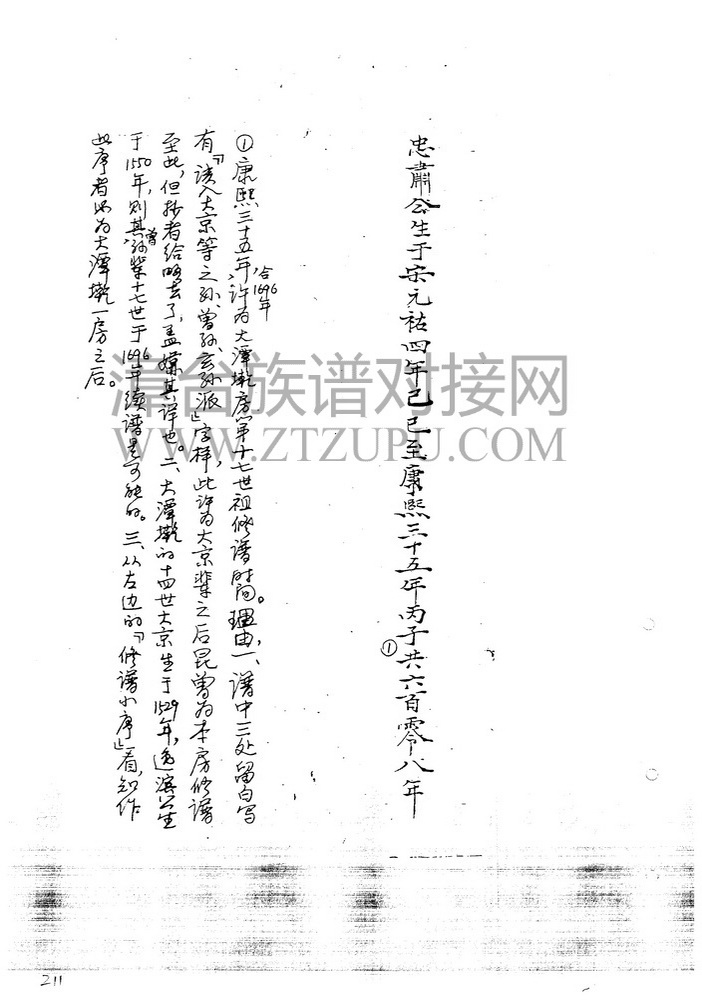 忠肅公生于宋元祐四年己巳至康熙三十五年丙子共六百零八年
①
①康熙三十五年,合1696年,许为大潭墘房第十七世祖修谱时间。理由,一、谱中三处留白写
有「该入大京等之孙、曾孙、玄孙派」字样,此许为大京辈之后昆曾为本房修谱
至此,但抄者给略去了,盖嫌其详也。二、大潭墘的十四世大京生于1529年,逸滨公生
于1550年,则其曾孙辈十七世于1696年续谱是可能的。三、从左边的「修谱小序」看,知作
此序者必为大潭墘一房之后。
漳台族谱对接网
WWW.ZTZUPU.COM
211